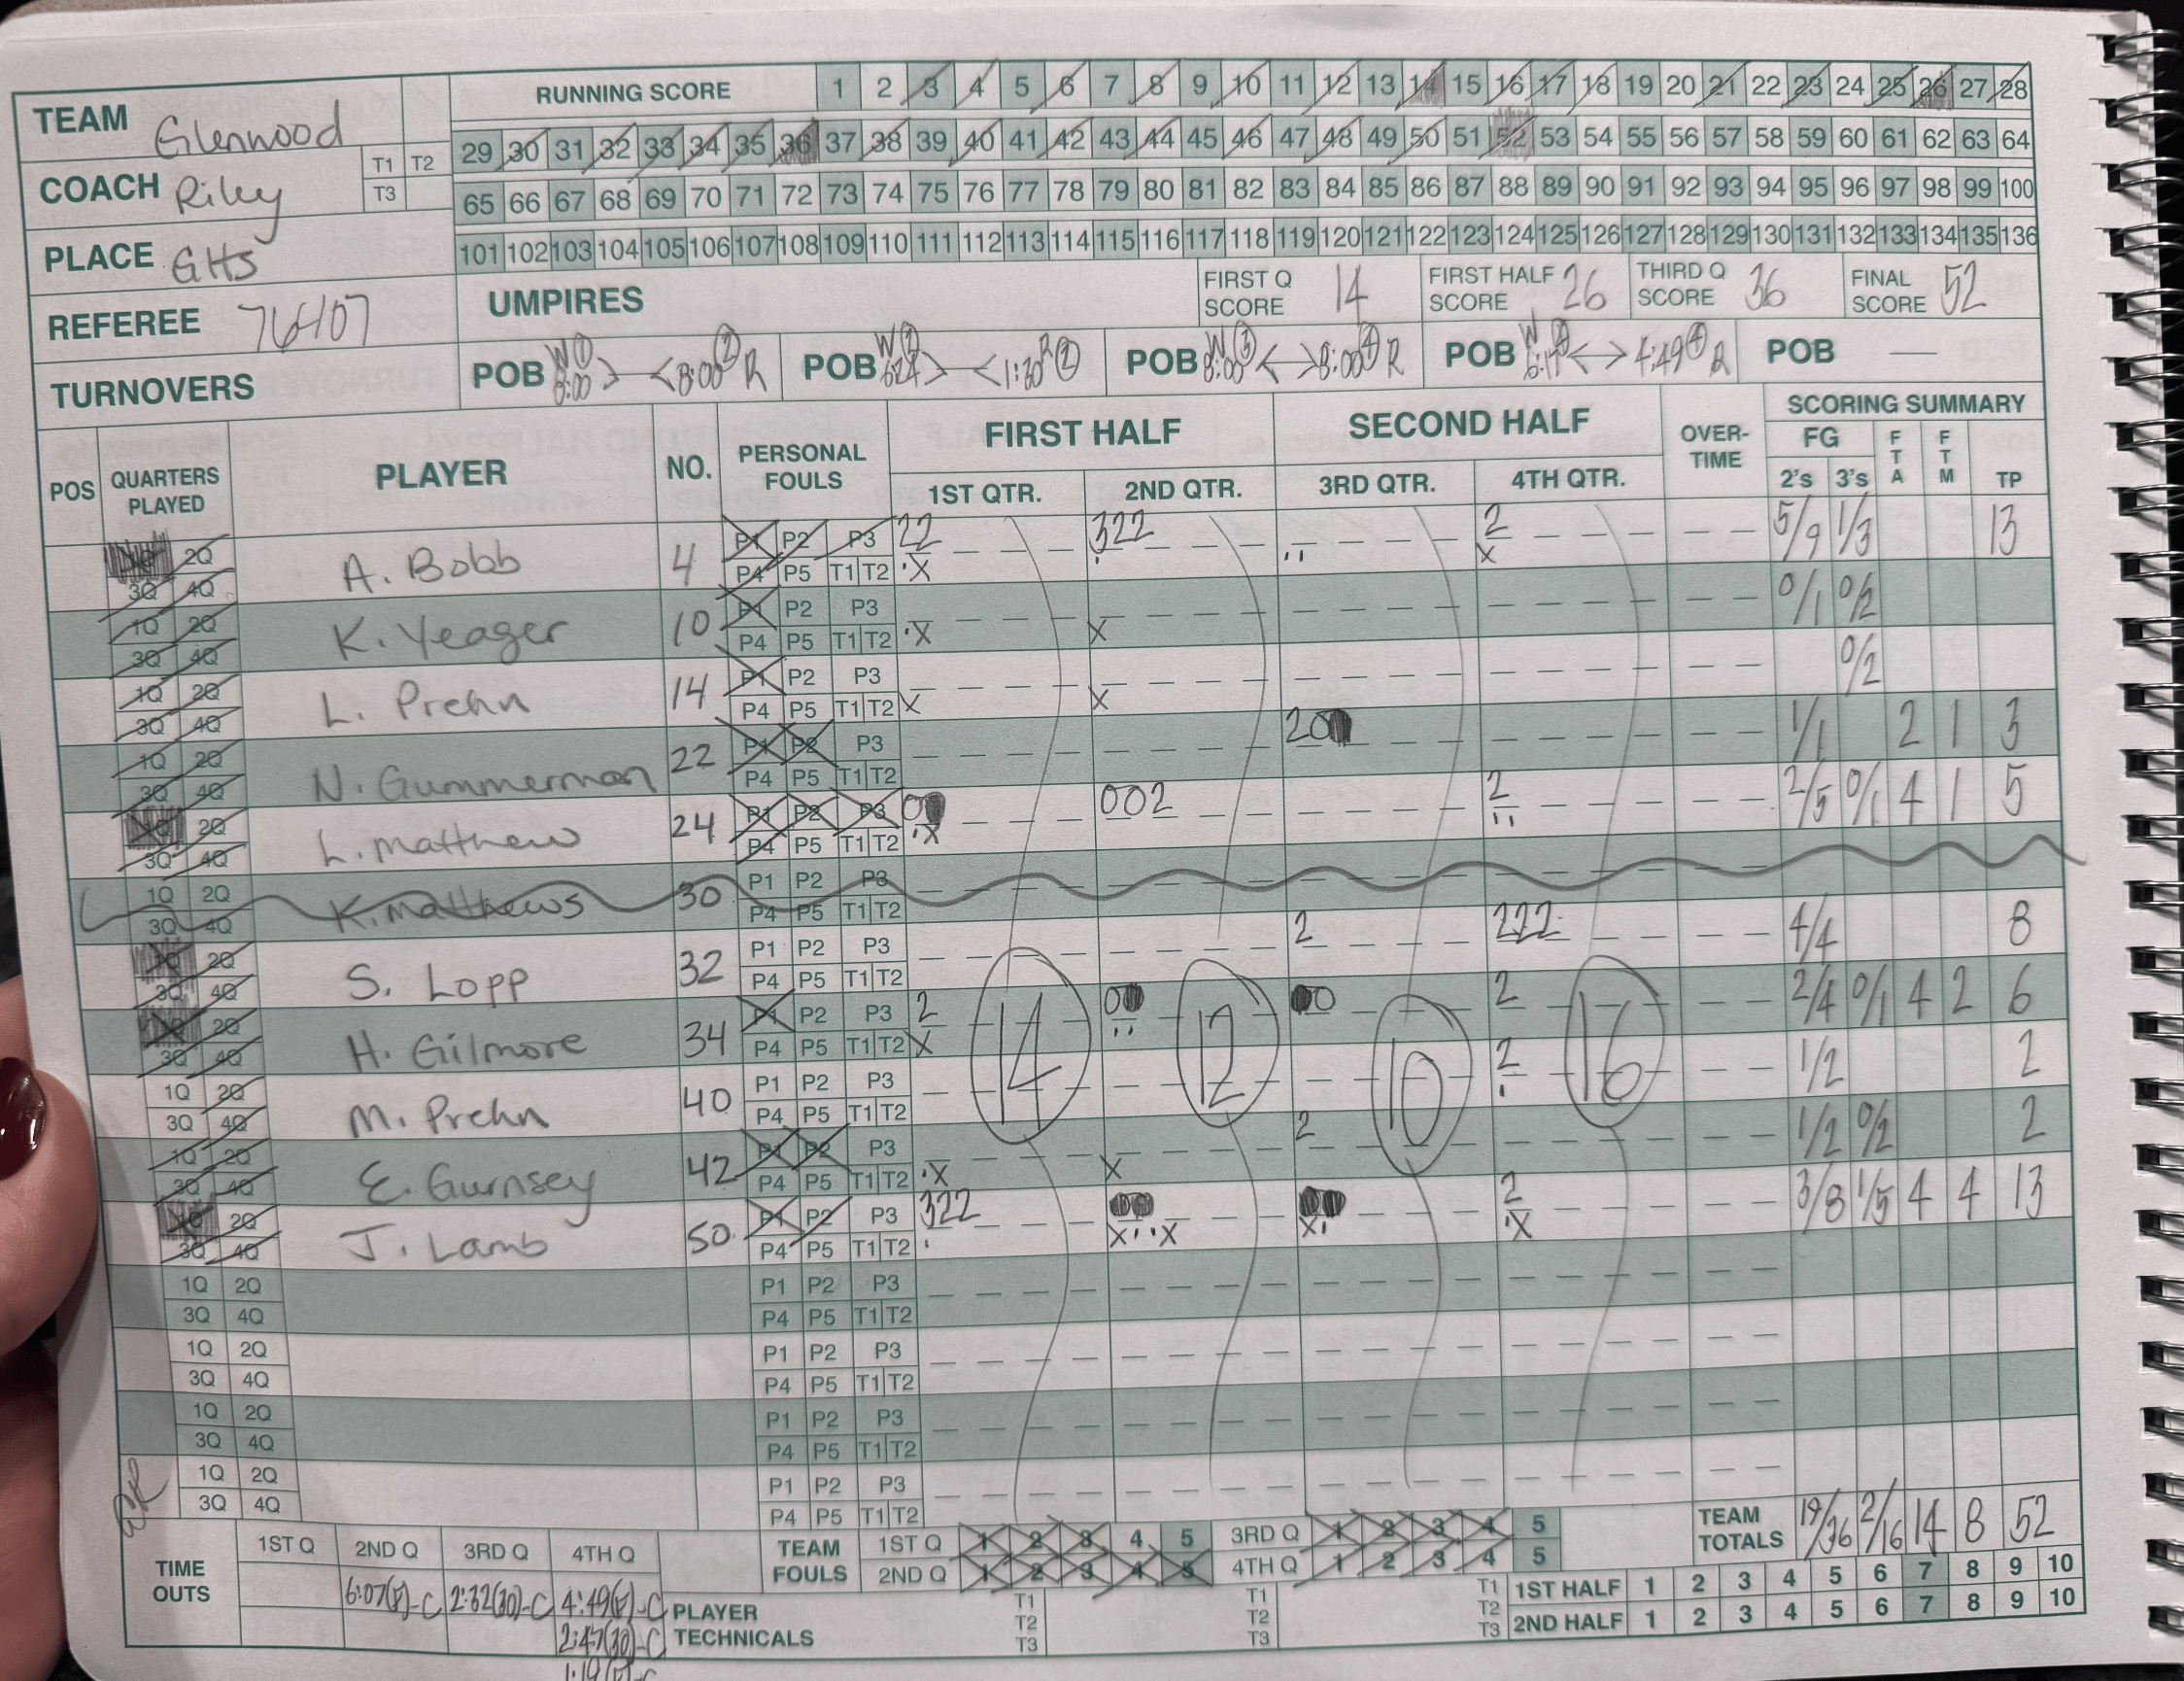 RUNNING SCORE 1 2 3 4 5 6 7 8 9 10 11 12 13 14 15 16 17 18 19 20 21 22 23 24 25 26 27 28
TEAM Glenwood
29 30 31 32 33 34 35 36 37 38 39 40 41 42 43 44 45 46 47 48 49 50 51 52 53 54 55 56 57 58 59 60 61 62 63 64
COACH Riley T1 T2
T3
65 66 67 68 69 70 71 72 73 74 75 76 77 78 79 80 81 82 83 84 85 86 87 88 89 90 91 92 93 94 95 96 97 98 99 100
PLACE GHS
101 102 103 104 105 106 107 108 109 110 111 112 113 114 115 116 117 118 119 120 121 122 123 124 125 126 127 128 129 130 131 132 133 134 135 136
REFEREE 76407
UMPIRES
FIRST Q SCORE 14
FIRST HALF SCORE 26
THIRD Q SCORE 36
FINAL SCORE 52
TURNOVERS
POB W 1 8:00 > < 8:00 2 R
POB W 2 6:24 > < 1:30 R 2
POB W 3 8:00 < > 8:00 4 R
POB W 4 < > 4:49 4 R
POB —
POS
QUARTERS PLAYED
PLAYER
NO.
PERSONAL FOULS
FIRST HALF
1ST QTR. 2ND QTR.
SECOND HALF
3RD QTR. 4TH QTR.
OVER-TIME
SCORING SUMMARY
FG
2's 3's FTA FTM TP
1Q 2Q 3Q 4Q A. Bobb 4 P1 P2 P3 P4 P5 T1 T2 22 .X 322 . .. 2 X 5/9 1/3 13
1Q 2Q 3Q 4Q K. Yeager 10 P1 P2 P3 P4 P5 T1 T2 .X X 0/1 0/2
1Q 2Q 3Q 4Q L. Prehn 14 P1 P2 P3 P4 P5 T1 T2 X X 0/2
1Q 2Q 3Q 4Q N. Gummerman 22 P1 P2 P3 P4 P5 T1 T2 20 1/1 2 1 3
1Q 2Q 3Q 4Q L. Matthew 24 P1 P2 P3 P4 P5 T1 T2 0 .X 002 2 .. 2/5 0/1 4 1 5
1Q 2Q 3Q 4Q K. Matthews 30 P1 P2 P3 P4 P5 T1 T2
1Q 2Q 3Q 4Q S. Lopp 32 P1 P2 P3 P4 P5 T1 T2 2 222 4/4 8
1Q 2Q 3Q 4Q H. Gilmore 34 P1 P2 P3 P4 P5 T1 T2 2 X 0 .. 0 2 2/4 0/1 4 2 6
1Q 2Q 3Q 4Q M. Prehn 40 P1 P2 P3 P4 P5 T1 T2 2 . 1/2 2
14 12 10 16
1Q 2Q 3Q 4Q E. Gurnsey 42 P1 P2 P3 P4 P5 T1 T2 .X X 2 1/2 0/2 2
1Q 2Q 3Q 4Q J. Lamb 50 P1 P2 P3 P4 P5 T1 T2 322 . X..X X. 2 .X 3/8 1/5 4 4 13
1Q 2Q 3Q 4Q P1 P2 P3 P4 P5 T1 T2
1Q 2Q 3Q 4Q P1 P2 P3 P4 P5 T1 T2
1Q 2Q 3Q 4Q P1 P2 P3 P4 P5 T1 T2
1Q 2Q 3Q 4Q P1 P2 P3 P4 P5 T1 T2
TIME OUTS
1ST Q 2ND Q 3RD Q 4TH Q
6:07(F)-C 2:32(30)-C 4:49(F)-C
2:47(30)-C
1:19(F)-C
TEAM FOULS
1ST Q 1 2 3 4 5 3RD Q 1 2 3 4 5
2ND Q 1 2 3 4 5 4TH Q 1 2 3 4 5
PLAYER TECHNICALS
T1 T1 T1
T2 T2 T2
T3 T3 T3
TEAM TOTALS 19/36 2/16 14 8 52
1ST HALF 1 2 3 4 5 6 7 8 9 10
2ND HALF 1 2 3 4 5 6 7 8 9 10